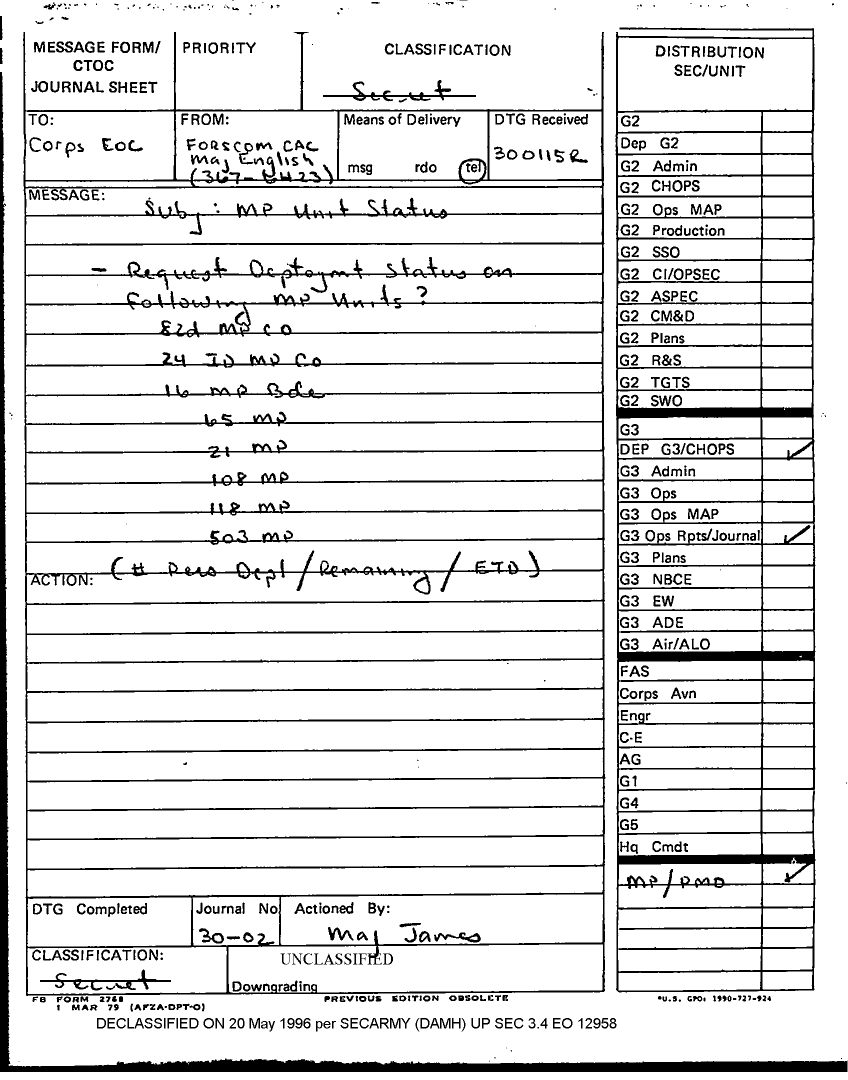 MESSAGE FORM/
CTOC
JOURNAL SHEET
PRIORITY
CLASSIFICATION
Secret
TO:
Corps EOC
FROM:
FORSCOM CAC
Maj English
Means of Delivery
msg rdo tel
DTG Received
300115R
MESSAGE:
Subj: MP Unit Status
- Request Deploymt Status on
following MP Units?
82d MP Co
24 ID MP Co
16 MP Bde
65 MP
21 MP
108 MP
118 MP
503 MP
ACTION: (# Pers Depl/Remaining/ETD)
DTG Completed
Journal No
30-02
Actioned By:
Maj James
CLASSIFICATION:
Secret
UNCLASSIFIED
Downgrading
FB FORM 2768
1 MAR 79 (AFZA-DPT-O)
PREVIOUS EDITION OBSOLETE
DISTRIBUTION
SEC/UNIT
G2
Dep G2
G2 Admin
G2 CHOPS
G2 Ops MAP
G2 Production
G2 SSO
G2 CI/OPSEC
G2 ASPEC
G2 CM&D
G2 Plans
G2 R&S
G2 TGTS
G2 SWO
G3
DEP G3/CHOPS
G3 Admin
G3 Ops
G3 Ops MAP
G3 Ops Rpts/Journal
G3 Plans
G3 NBCE
G3 EW
G3 ADE
G3 Air/ALO
FAS
Corps Avn
Engr
C-E
AG
G1
G4
G5
Hq Cmdt
MP/PMO
*U.S. GPO: 1990-727-924
DECLASSIFIED ON 20 May 1996 per SECARMY (DAMH) UP SEC 3.4 EO 12958